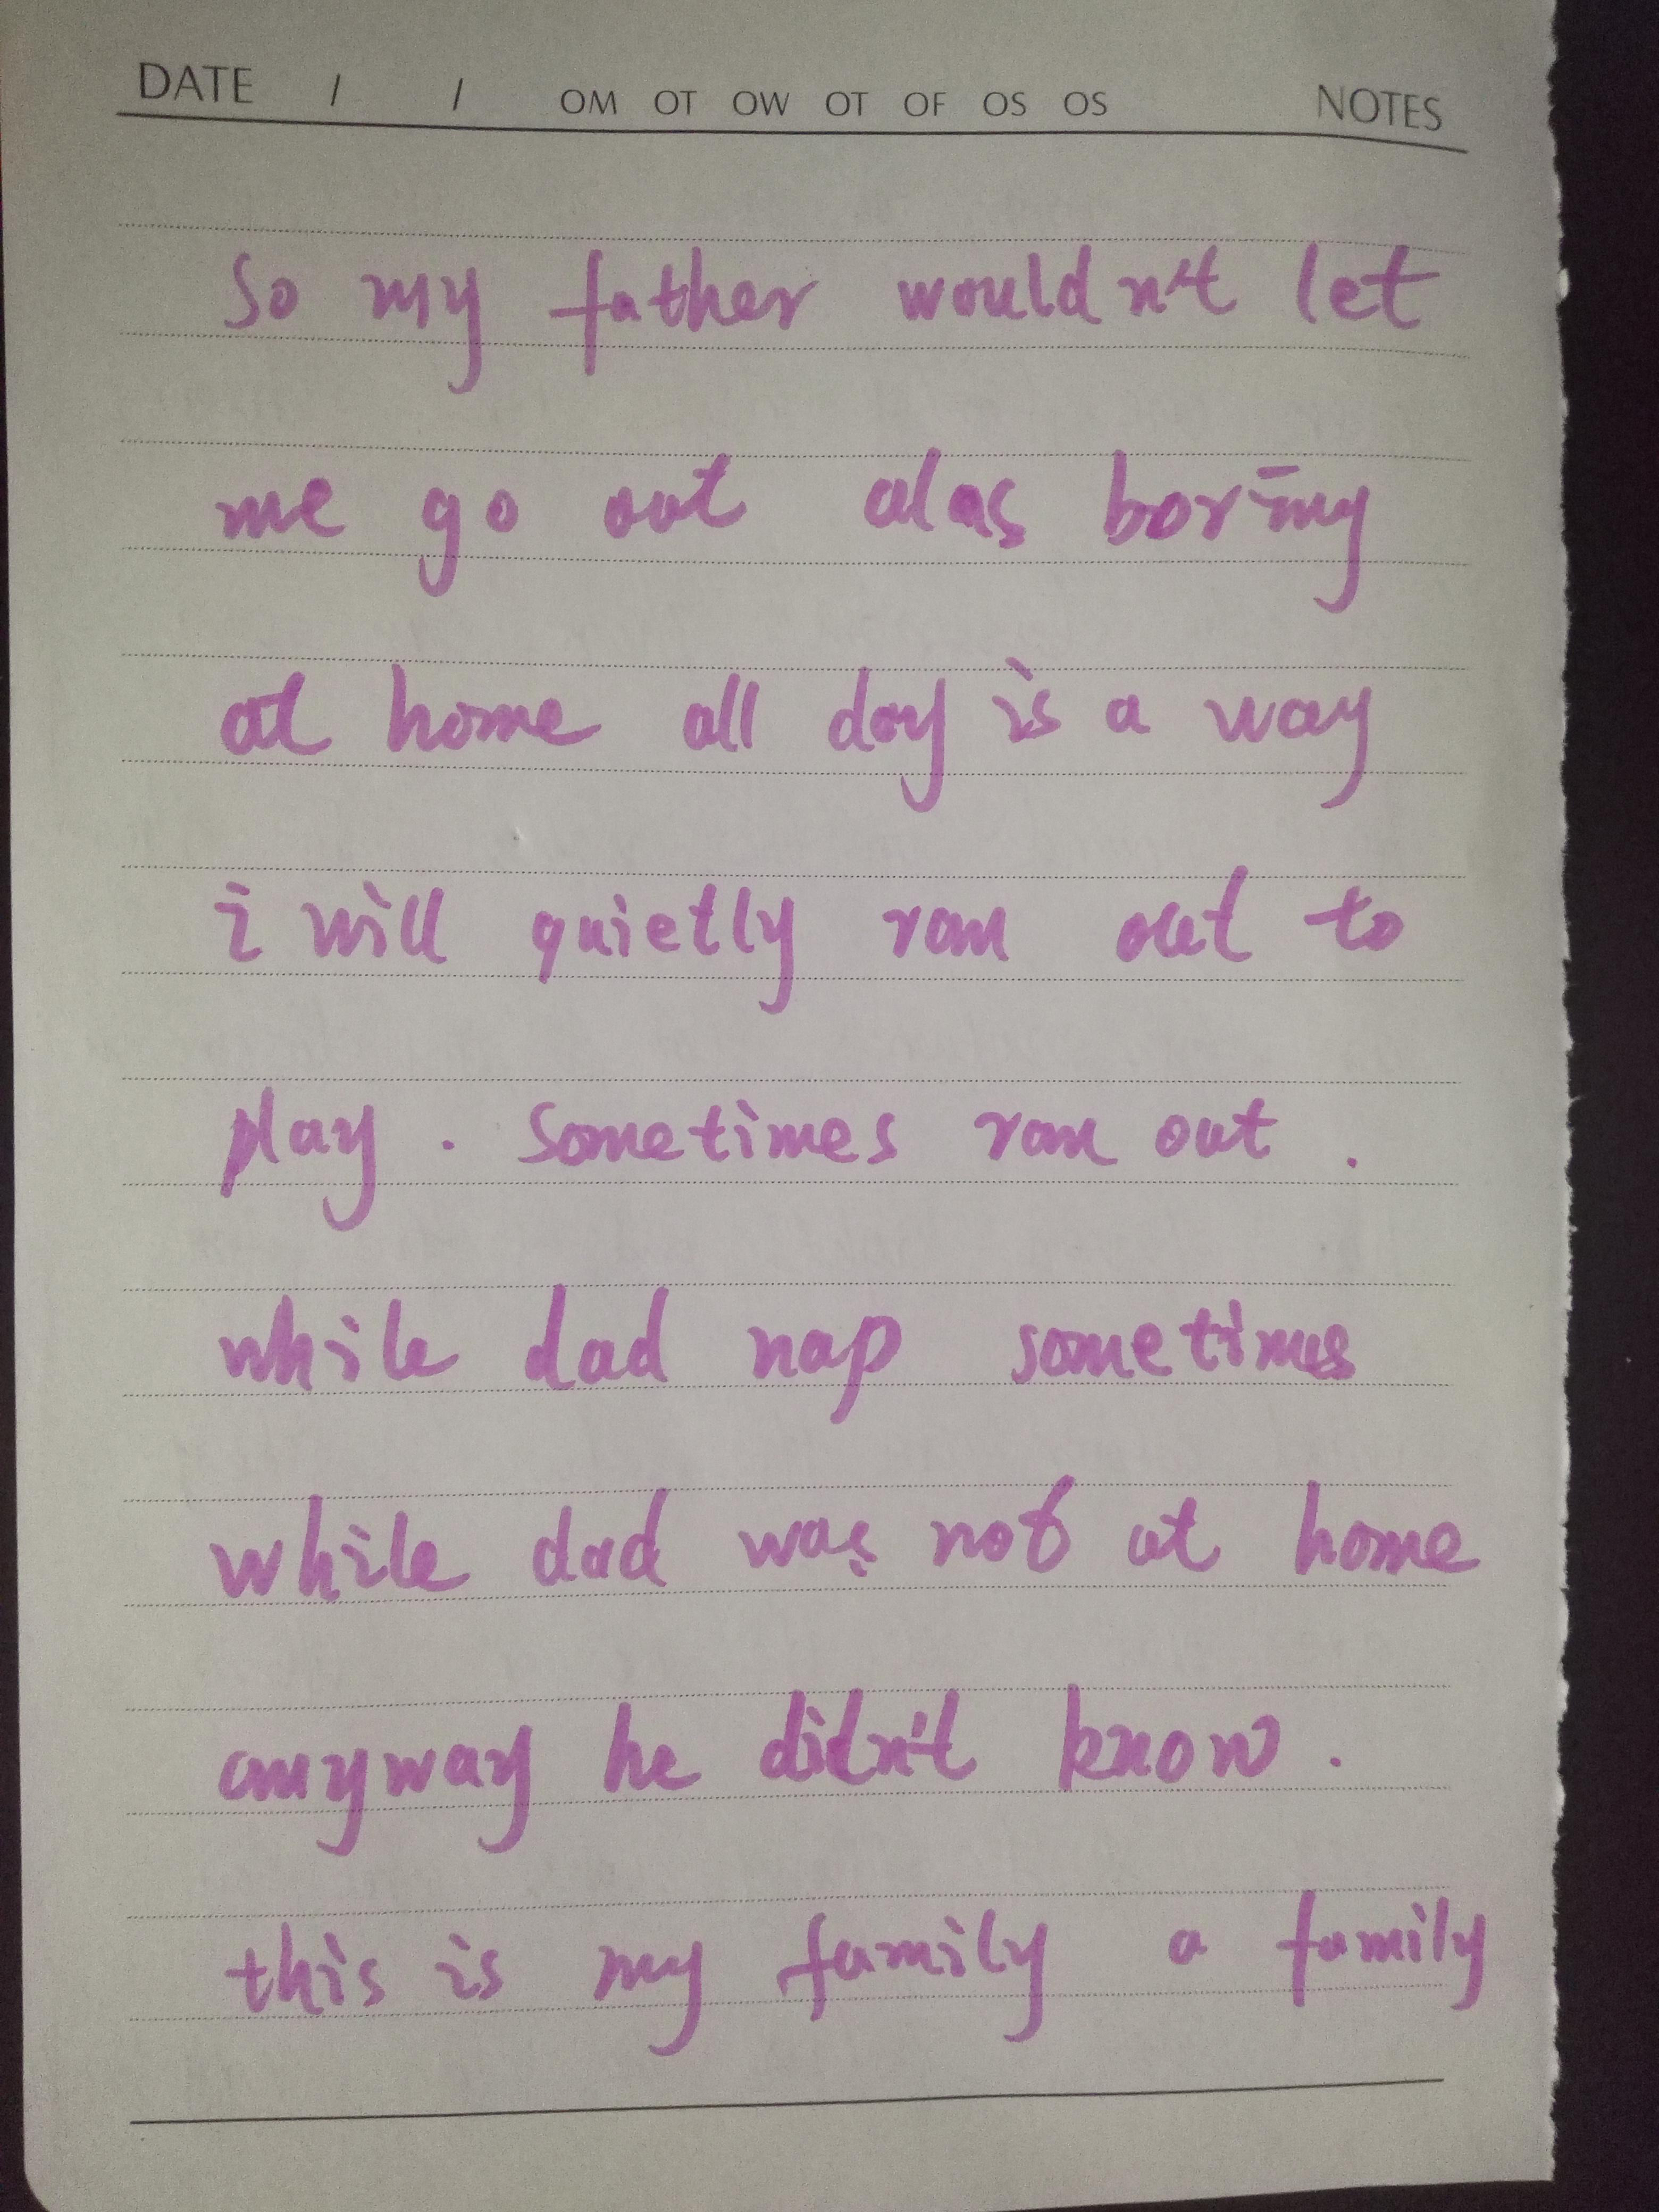 DATE / / OM OT OW OT OF OS OS NOTES
So my father wouldn't let
me go out alas boring
at home all day is a way
i will quietly ran out to
play . Sometimes ran out .
while dad nap sometimes
while dad was not at home
anyway he didn't know .
this is my family a family